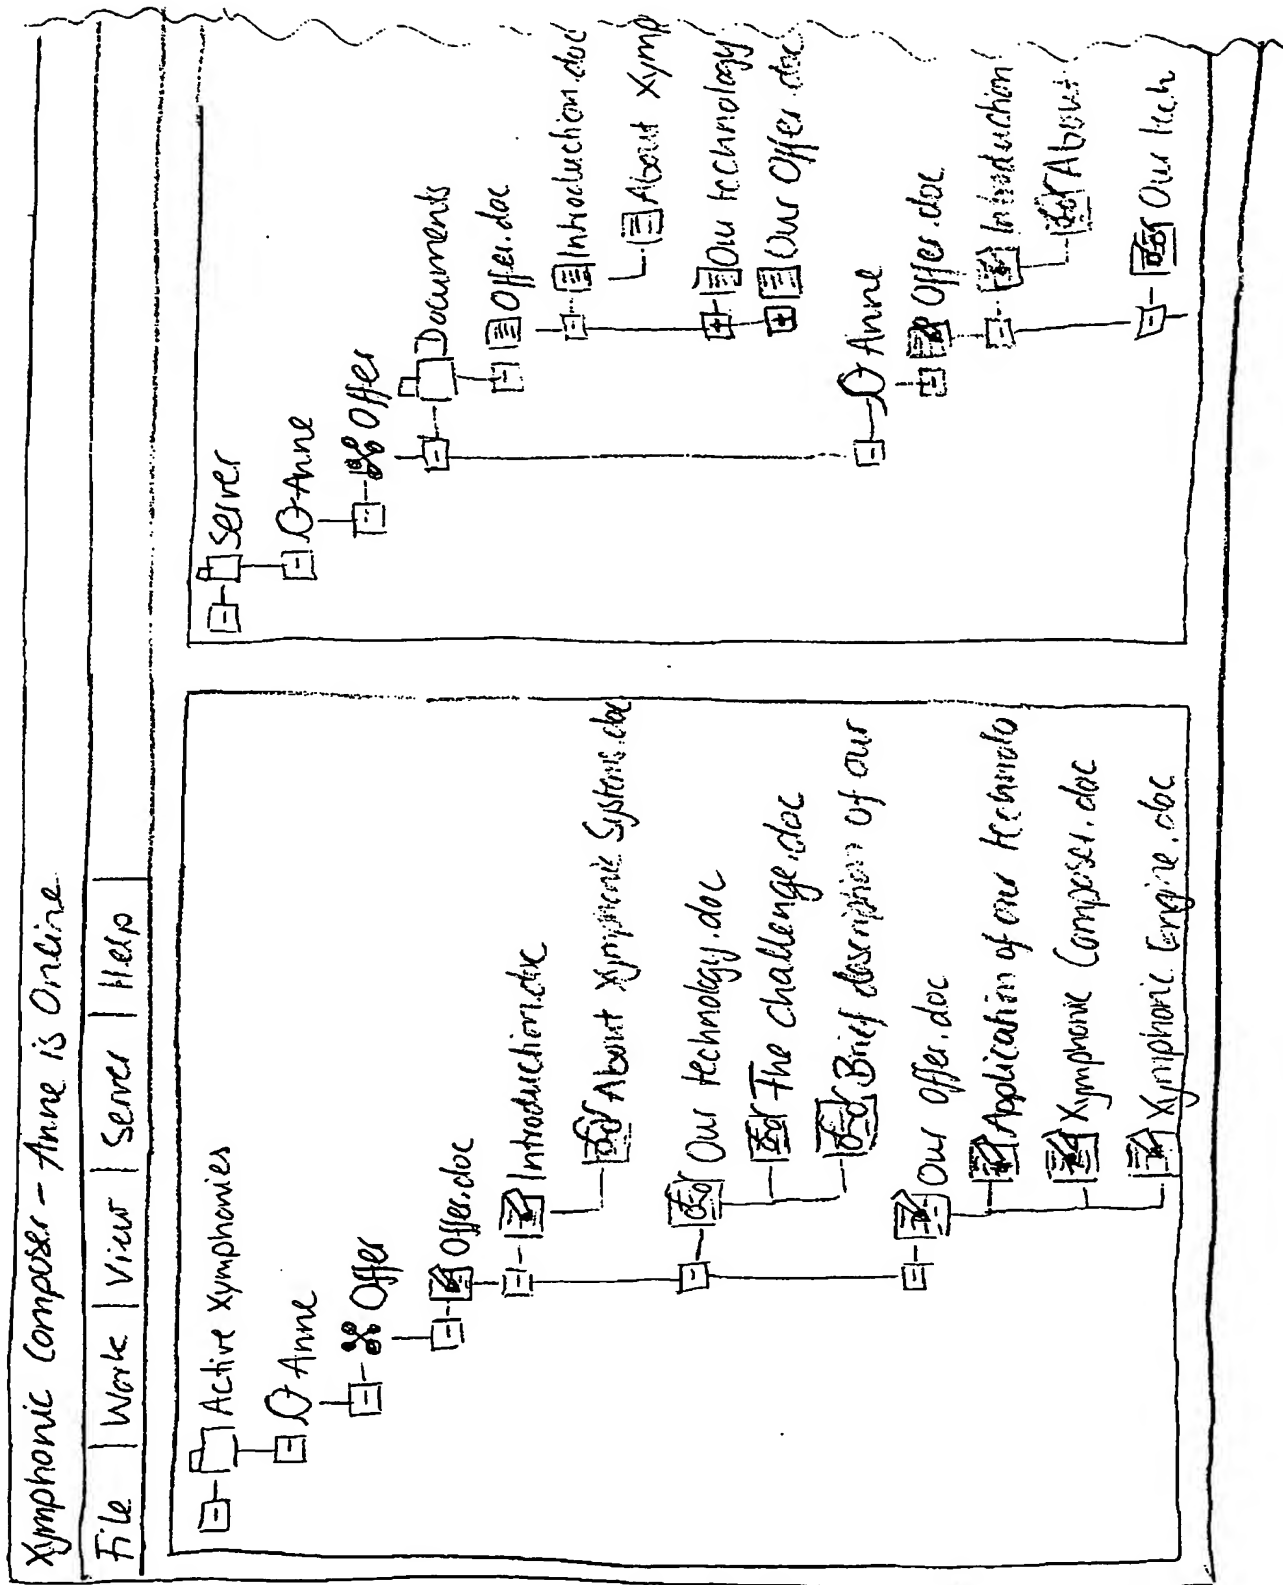 Xymphonic Composer - Anne is Online
File | Work | View | Server | Help |
Active Xymphonies
Anne
Offer
Offer.doc
Introduction.doc
About Xymphonic Systems.doc
Our technology.doc
The challenge.doc
Brief description of our
Our offer.doc
Application of our technolo
Xymphonic Composer.doc
Xymphonic Engine.doc
Server
Anne
Offer
Documents
Offer.doc
Introduction.doc
About Xymp
Our technology
Our Offer.doc
Anne
Offer.doc
Introduction
About
Our tech